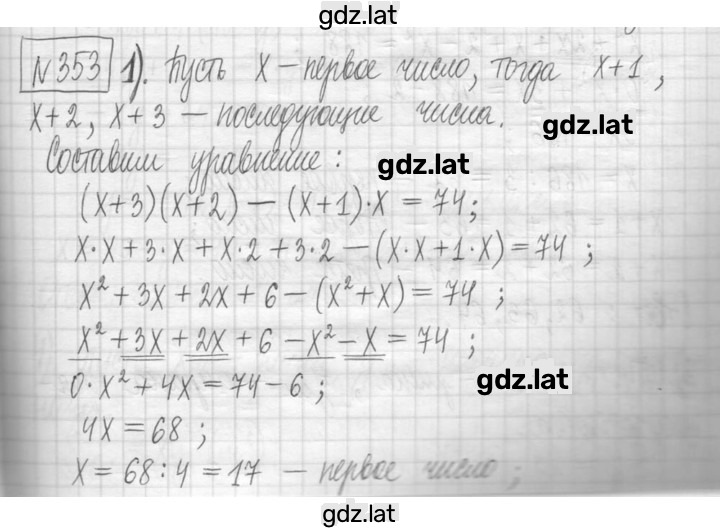 gdz.lat
N 353 1). Пусть x – первое число, тогда x+1,
x+2, x+3 – последующие числа.
gdz.lat
Составим уравнение:
gdz.lat
(x+3)(x+2) – (x+1)·x = 74;
x·x + 3·x + x·2 + 3·2 – (x·x + 1·x) = 74;
x² + 3x + 2x + 6 – (x² + x) = 74;
x² + 3x + 2x + 6 – x² – x = 74;
0·x² + 4x = 74 – 6;
gdz.lat
4x = 68;
x = 68 : 4 = 17 – первое число;
gdz.lat